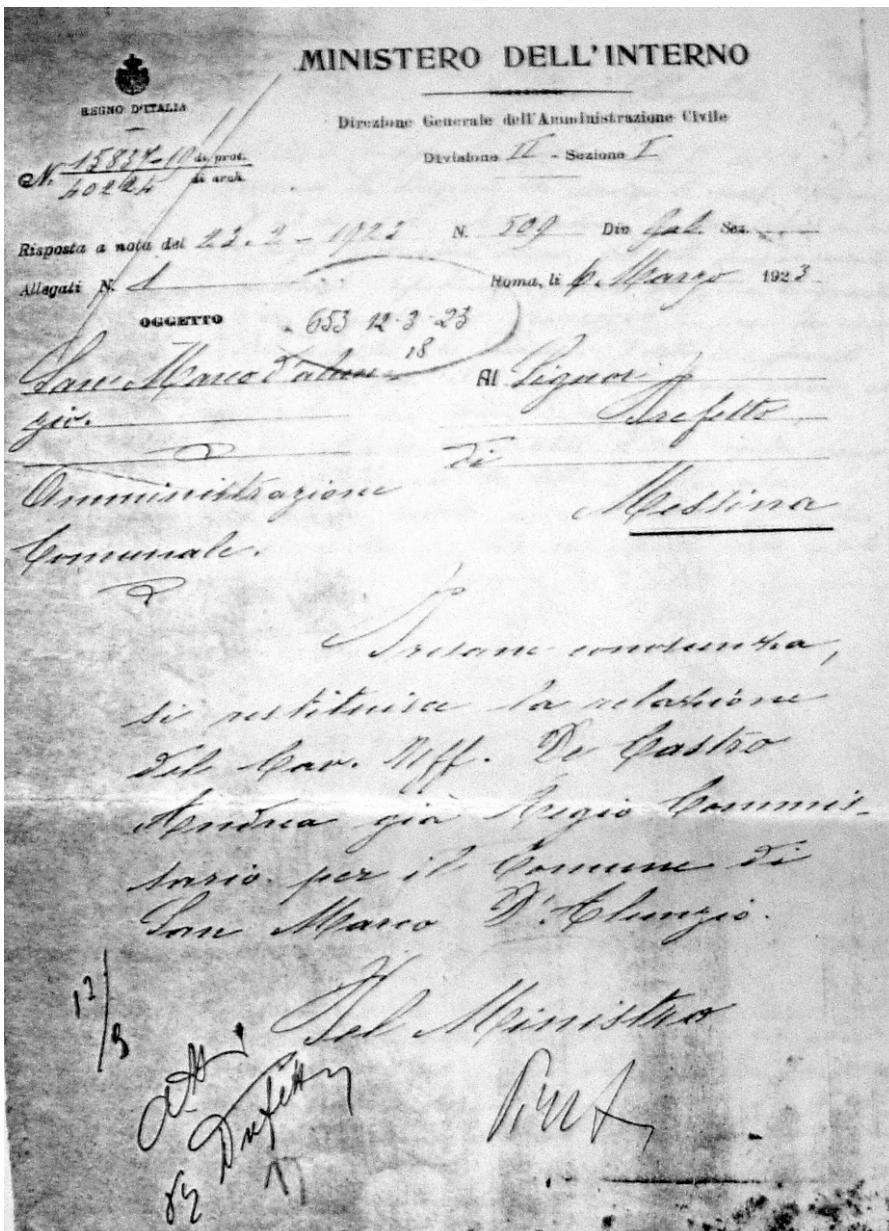 MINISTERO DELL'INTERNO
REGNO D'ITALIA
Direzione Generale dell'Amministrazione Civile
Divisione II - Sezione I
N. 15837-10 di prot.
40224 di arch.
Risposta a nota del 23.2-1923 N. 509 Div Gab. Sez.
Allegati N. 1 Roma, li 6 Marzo 1923
OGGETTO
653 12-3-23
18
San Marco d'Alun-
gio.
Al Signor
Prefetto
di
Messina
Amministrazione
Comunale.
Presane conoscenza,
si restituisce la relazione
del Cav. Uff. De Castro
Andrea già Regio Commis-
sario per il Comune di
San Marco D'Alungio.
Pel Ministro
12/3